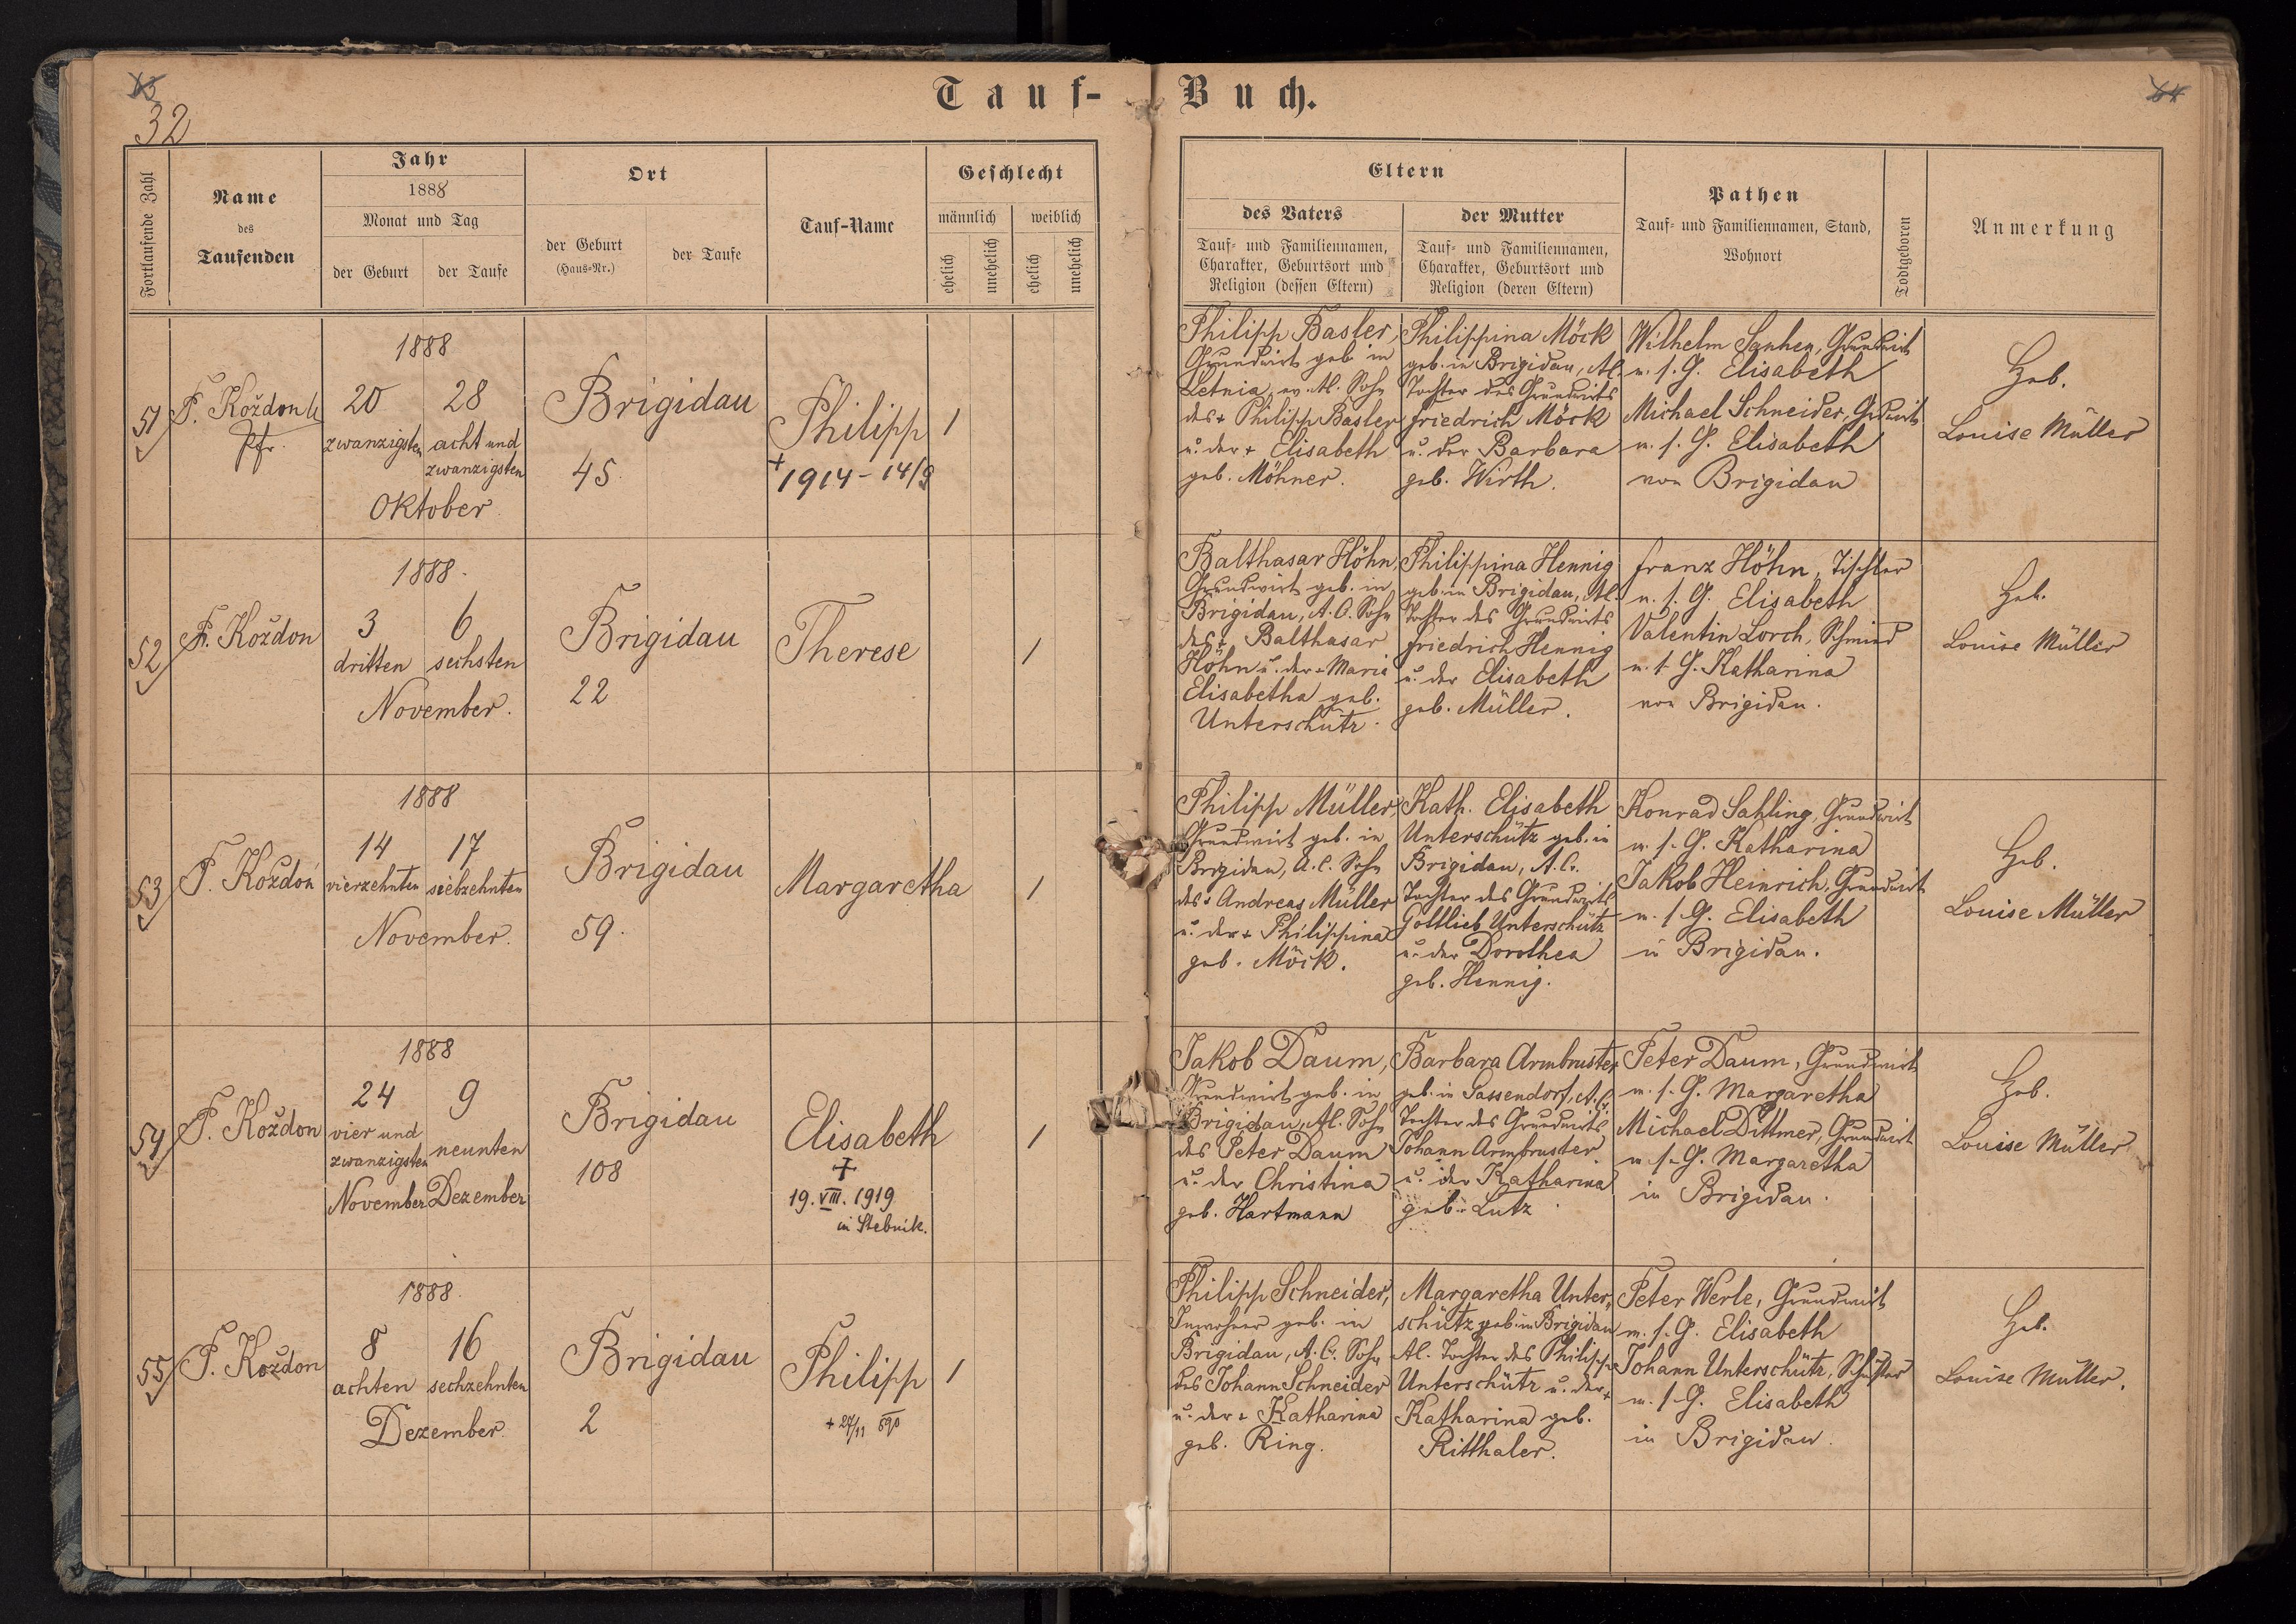 63
32
Tauf-
Fortlaufende Zahl
Name
des
Taufenden
Jahr
1888
Monat und Tag
der Geburt
der Taufe
Ort
der Geburt
(Haus-Nr.)
der Taufe
Tauf-Name
Geschlecht
männlich
weiblich
ehelich
unehelich
ehelich
unehelich
51
F. Koždon
Pfr.
1888
20 28
zwanzigsten acht und
zwanzigsten
Oktober
Brigidau
45.
Philipp
+ 1914 - 14/9
1
52
F. Koždon
1888.
3 6
dritten sechsten
November.
Brigidau
22
Therese
1
53
F. Koždon
1888
14 17
vierzehnten siebzehnten
November.
Brigidau
59.
Margaretha
1
54
F. Koždon
1888
24 9
vier und
zwanzigsten neunten
November Dezember
Brigidau
108
Elisabeth
+
19. VIII. 1919
in Stebnik.
1
55
F. Koždon
1888.
8 16
achten sechzehnten
Dezember.
Brigidau
2
Philipp
+ 27/11 890
1
Buch.
64
Eltern
des Vaters
Tauf- und Familiennamen,
Charakter, Geburtsort und
Religion (dessen Eltern)
der Mutter
Tauf- und Familiennamen,
Charakter, Geburtsort und
Religion (deren Eltern)
Pathen
Tauf- und Familiennamen, Stand,
Wohnort
Todtgeboren
Anmerkung
Philipp Basler,
Grundwirt geb. in
Letnia, ev. Al. Sohn
des + Philipp Basler
u. der + Elisabeth
geb. Möhner.
Philippina Möck
geb. in Brigidau, Al.
Tochter des Grundwirts
Friedrich Möck
u. der Barbara
geb. Wirth.
Wilhelm Grundwirt
u. s. G. Elisabeth
Michael Schneider, Grdwirt
u. s. G. Elisabeth
von Brigidau
Heb.
Louise Müller
Balthasar Höhn,
Grundwirt geb. in
Brigidau, A. C. Sohn
des + Balthasar
Höhn u. der + Maria
Elisabetha geb.
Unterschütz.
Philippina Hennig
geb. in Brigidau, Al.
Tochter des Grundwirts
Friedrich Hennig
u. der Elisabeth
geb. Müller.
Franz Höhn, Tischler
u. s. G. Elisabeth
Valentin Lorch, Schmied
u. s. G. Katharina
von Brigidau.
Heb.
Louise Müller
Philipp Müller,
Grundwirt geb. in
Brigidau, A. C. Sohn
des + Andreas Müller
u. der + Philippina
geb. Möck.
Kath. Elisabeth
Unterschütz geb. in
Brigidau, A. C.
Tochter des Grundwirts
Gottlieb Unterschütz
u. der Dorothea
geb. Hennig.
Konrad Sahling, Grundwirt
u. s. G. Katharina
Jakob Heinrich, Grundwirt
u. s. G. Elisabeth
in Brigidau.
Heb.
Louise Müller
Jakob Daum,
Grundwirt geb. in
Brigidau, Al. Sohn
des Peter Daum
u. der Christina
geb. Hartmann
Barbara Armbruster,
geb. in Sassendorf, A. C.
Tochter des Grundwirts
Johann Armbruster
u. der Katharina
geb. Lutz.
Peter Daum, Grundwirt
u. s. G. Margaretha
Michael Dittmer, Grundwirt
u. s. G. Margaretha
in Brigidau.
Heb.
Louise Müller
Philipp Schneider,
Inwohner geb. in
Brigidau, A. C. Sohn
des Johann Schneider
u. der + Katharina
geb. Ring.
Margaretha Unter-
schütz geb. in Brigidau
Al. Tochter des Philipp
Unterschütz u. der +
Katharina geb.
Ritthaler.
Peter Werle, Grundwirt
u. s. G. Elisabeth
Johann Unterschütz, Schuster
u. s. G. Elisabeth
in Brigidau.
Heb.
Louise Müller.